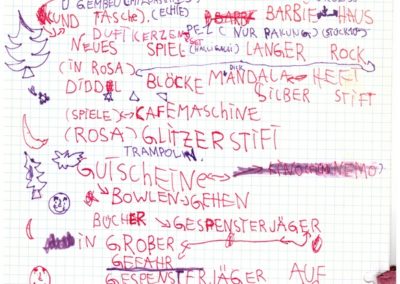 UND TASCHE), (ECHTE) BARBIE HAUS
DUFTKERZEN PELZ (NUR PAKUNG)
NEUES SPIEL (HALLIGALLI) LANGER ROCK
(IN ROSA)
DIDDL BLÖCKE DICK MANDALA HEFT
SILBER STIFT
(SPIELE) KAFEMASCHINE
(ROSA) GLITZERSTIFT
TRAMPOLIN
GUTSCHEINE KINO NEMO)
BOWLEN GEHEN
BÜCHER GESPENSTERJÄGER
IN GROBER
GEFAHR
GESPENSTERJÄGER AUF